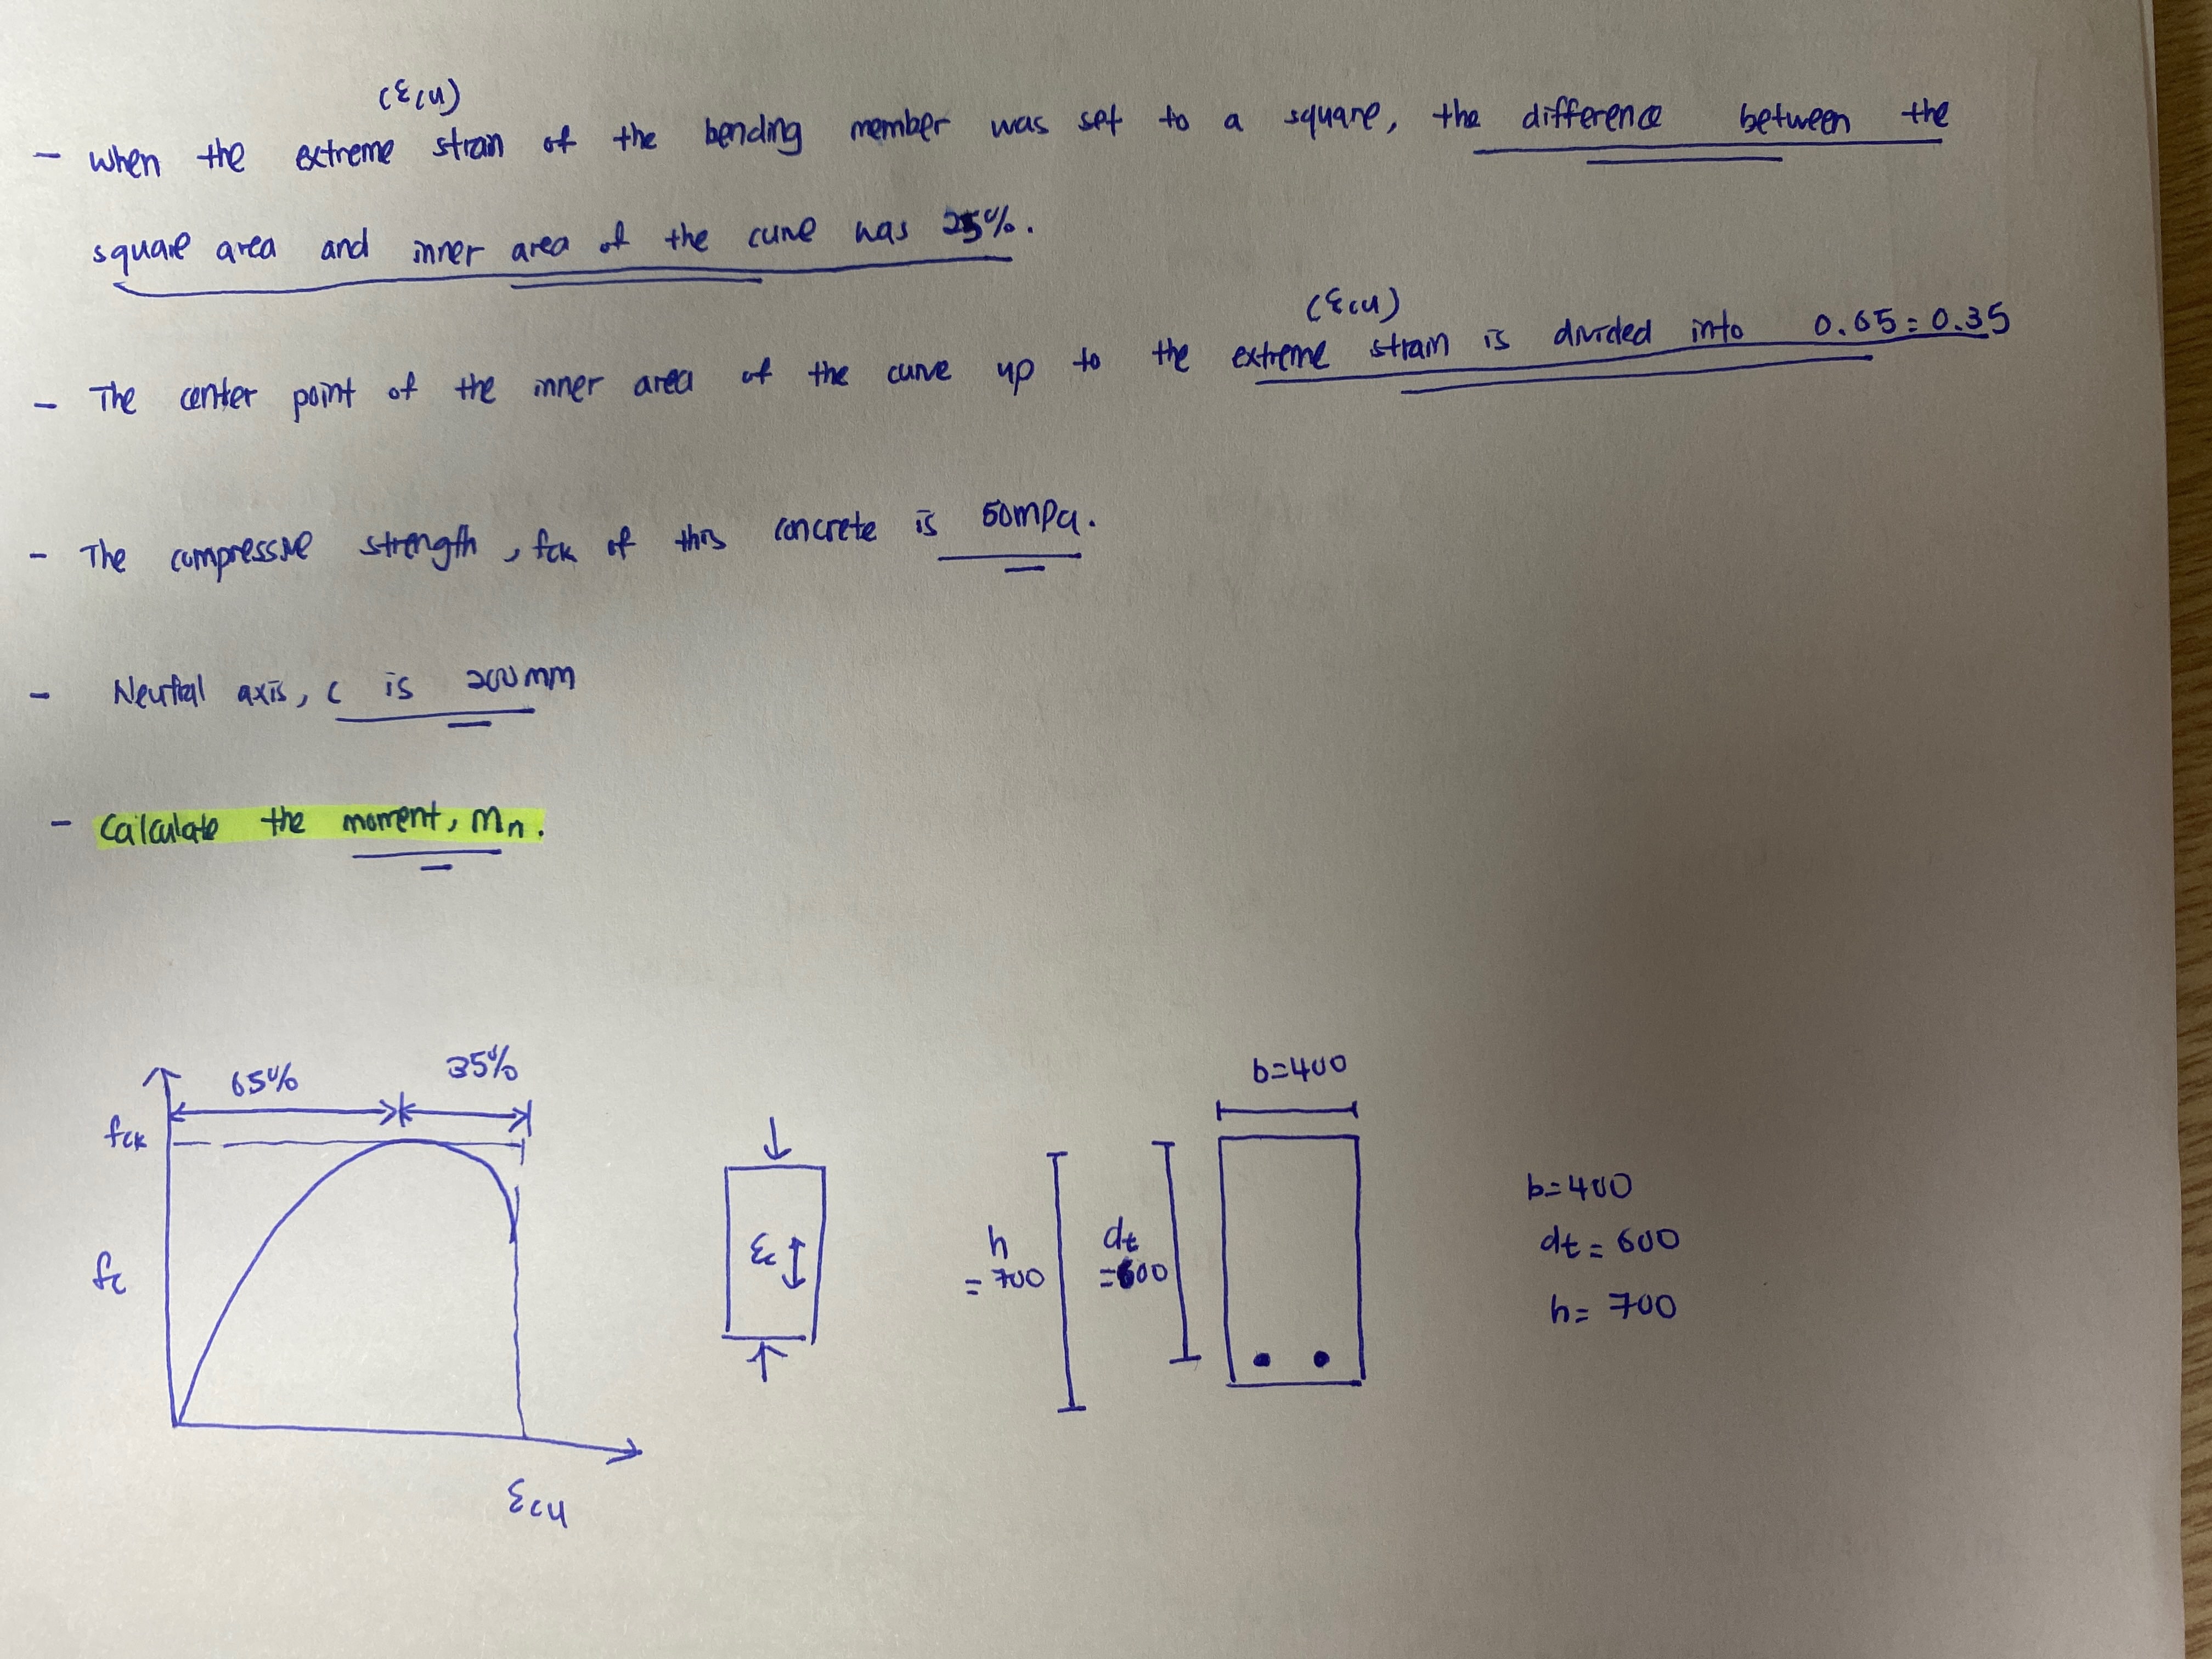 (εcu)
- When the extreme strain of the bending member was set to a square, the difference between the
square area and inner area of the curve was 25%.
(εcu)
- The center point of the inner area of the curve up to the extreme strain is divided into 0.65 : 0.35
- The compressive strength, fck of this concrete is 50mpa.
- Neutral axis, c is 200mm
- Calculate the moment, Mn.
65% 35%
b=400
fck
fc
εc
h
= 700
dt
=600
b=400
dt = 600
h= 700
εcu